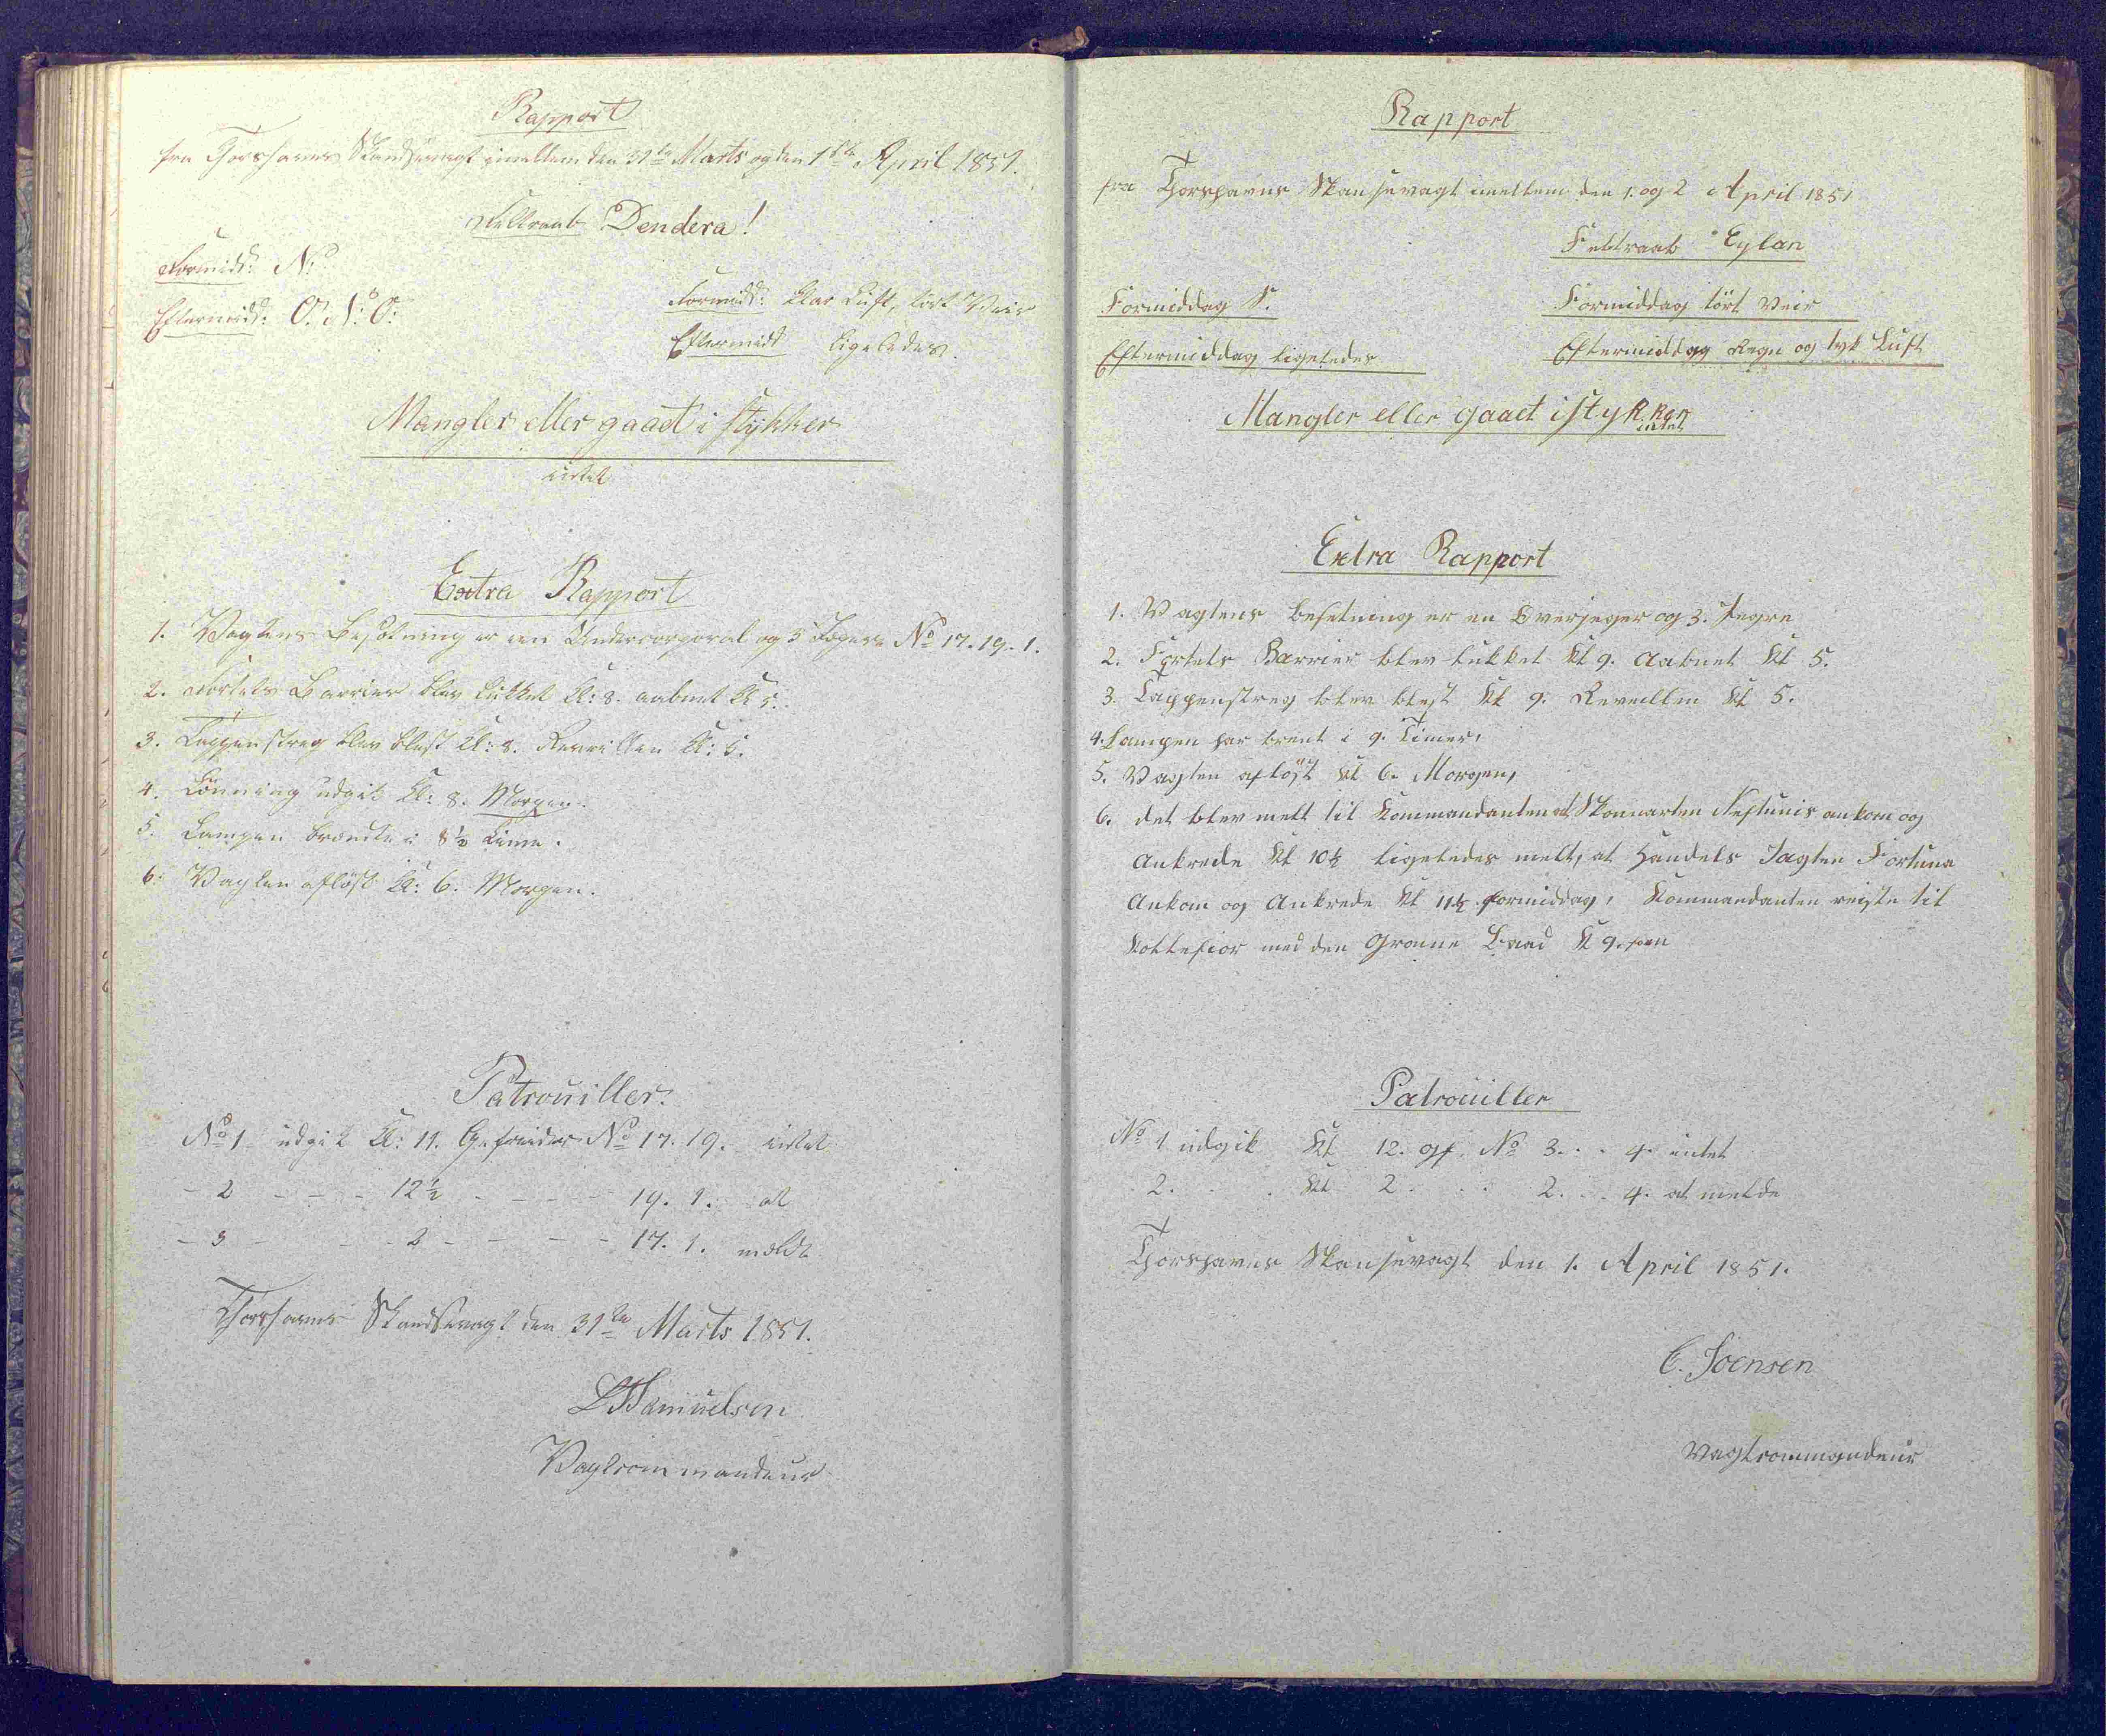 Rapport
fra Thorshavns Skandsevagt imellem den 31te Marts og den 1ste April 1851.
Feltraab Dendera!
Formidd: N:
Eftermidd: O: N: O:
Formidd: klar Luft, tört Veir
Eftermidd ligeledes.
Mangler eller gaaet i stykker
intet
Extra Rapport
1. Vagtens Besætning er een Undercorporal og 3 Jægere No 17. 19. 1.
2. Fortets Barrier blev lukket Kl: 8. aabnet Kl 5.
3. Tappenstreg blev blæst Kl: 8. Reveillen Kl: 5.
4. Lönning udgik Kl: 8. Morgen.
5. Lampen brændte i 8½ Time.
6. Vagten aflöst Kl: 6. Morgen.
Patrouiller.
No 1 udgik Kl: 11. Gefreider No 17. 19. intet
- 2 - - - 12½ - - - - 19. 1. at
- 3 - - - 2 - - - - 17. 1. meldt
Thorshavns Skandsevagt den 31te Marts 1851.
Samuelsen
Vagtcommandeur
Rapport
fra Thorshavns Skansevagt imellem den 1. og 2 April 1851
Feltraab Eylan
Formiddag S.
Eftermiddag ligeledes
Formiddag tört Veir
Eftermiddag Regn og tyk Luft
Mangler eller gaaet istykker
intet
Extra Rapport
1. Vagtens besetning er en Overjeger og 3. Jegre
2. Fortets Barrier blev lukket Kl 9. Aabnet Kl 5.
3. Tappenstreg blev blest Kl 9. Reveillen Kl 5.
4. Lampen har brent i 9. Timer,
5. Vagten aflöst Kl 6. Morgen,
6. det blev melt til Kommandanten at Skonnarten Neptunis ankom og
Ankrede Kl 10½ ligeledes melt, at Handels Jagten Fortuna
Ankom og Ankrede Kl 11½ formiddag, Kommandanten reiste til
Kollefior med den Gronne Baad Kl 9.
Patrouiller
No 1 udgik Kl 12. gf. No 3. . . 4. intet
2. . . Kl 2. . . 2. . . 4. at melde
Thorshavns Skansevagt den 1. April 1851.
C. Joensen
Vagtcommandeur